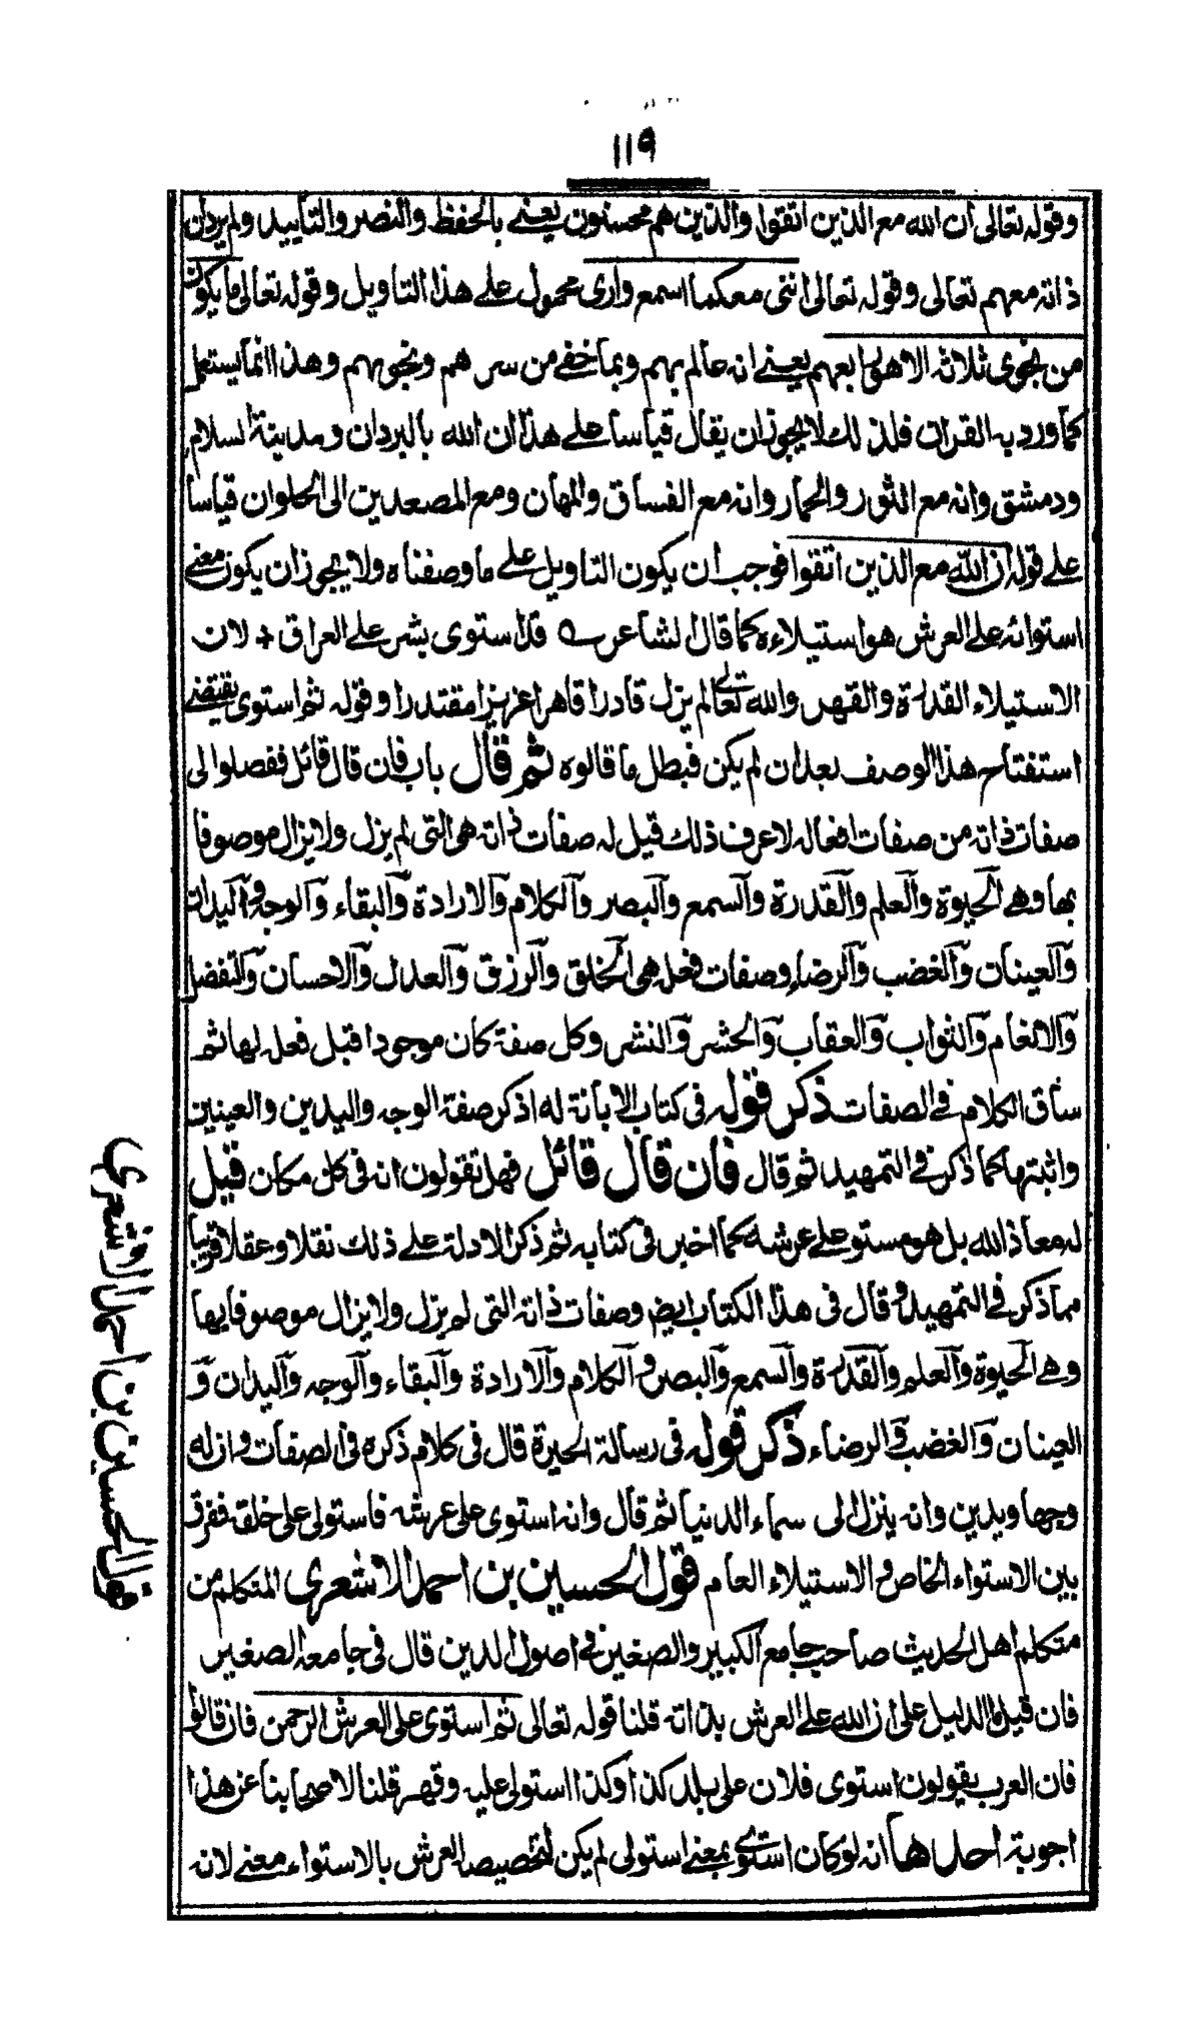 ١١٩
وقوله تعالى ان الله مع الذين اتقوا والذين هم محسنون يعنے بالحفظ والنصر والتأييد ولم يرد ان
ذاته معهم تعالى وقوله تعالى اننى معكما اسمع وارى محمول علے هذا التاويل وقوله تعالى ما يكون
من نجوى ثلاثة الا هو رابعهم يعنے انه عالم بهم وبما خفے من سرهم ونجوىهم وهذا انما يستعمل
كما ورد به القران فلذلك لا يجوز ان يقال قياسا علے هذا ان الله بالبردان ومدينة السلام
ودمشق وانه مع الثور والحمار وانه مع الفساق والمهان ومع المصعدين الى الحلوان قياسا
علے قوله ان الله مع الذين اتقوا فوجب ان يكون التاويل علے ما وصفناه ولا يجوز ان يكون معنے
استوائه علے العرش هو استيلاءه كما قال الشاعر ے قد استوى بشر علے العراق + لان
الاستيلاء القدرة والقهر والله تعالے لم يزل قادرا قاهرا عزيزا مقتدرا وقوله ثم استوى يقتضے
استفتاح هذا الوصف بعد ان لم يكن فبطل ما قالوه ثم قال باب فان قال قائل ففصلوا لى
صفات ذاته من صفات افعاله لاعرف ذلك قيل له صفات ذاته هى التى لم يزل ولا يزال موصوفا
بها وهے الحيوة والعلم والقدرة والسمع والبصر والكلام والارادة والبقاء والوجه واليدان
والعينان والغضب والرضاء وصفات فعله هى الخلق والرزق والعدل والاحسان والتفضل
والانعام والثواب والعقاب والحشر والنشر وكل صفة كان موجودا قبل فعله لها ثم
ساق الكلام فے الصفات ذكر قوله فى كتاب الابانة له اذكر صفة الوجه واليدين والعينين
واثبتها كما ذكر فے التمهيد ثم قال فان قال قائل فهل تقولون انه فى كل مكان قيل
له معاذ الله بل هو مستو علے عرشه كما اخبر فى كتابه ثم ذكر الادلة علے ذلك نقلا وعقلا قريبا
مما ذكر فے التمهيد وقال فى هذا الكتاب ايضا وصفات ذاته التى لم يزل ولا يزال موصوفا بها
وهے الحيوة والعلم والقدرة والسمع والبصر والكلام والارادة والبقاء والوجه واليدان و
العينان والغضب والرضاء ذكر قوله فى رسالة الحيرة قال فى كلام ذكره فى الصفات وان له
وجها ويدين وانه ينزل الى سماء الدنيا ثم قال وانه استوى على عرشه فاستولى على خلقه ففرق
بين الاستواء الخاص والاستيلاء العام قول الحسين بن احمد الاشعرى المتكلم من
متكلم اهل الحديث صاحب جامع الكبير والصغير فے اصول الدين قال فى جامعه الصغير
فان قيل ما الدليل على ان الله علے العرش بذاته قلنا قوله تعالى ثم استوى على العرش الرحمن فان قالوا
فان العرب يقولون استوى فلان على بلد كذا وكذا استولى عليه وقهر قلنا لاصحابنا عن هذا
اجوبة احدها انه لو كان استوے بمعنے استولى لم يكن لتخصيص العرش بالاستواء معنے لانه
قول الحسين بن احمد الاشعرى